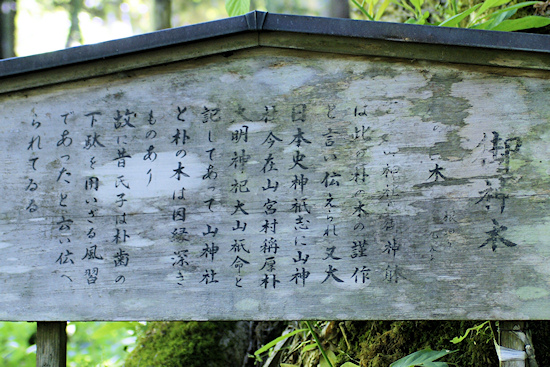 御神木
木
山神社
神
は此の朴の木の謹作
と言い伝えられ又大
日本史神祇志に山神
社今在山宮村称原朴
大明神祀大山祇命と
記してあって山神社
と朴の木は因縁深き
ものあり
故に昔氏子は朴歯の
下駄を用いざる風習
であったと云い伝へ
られてゐる